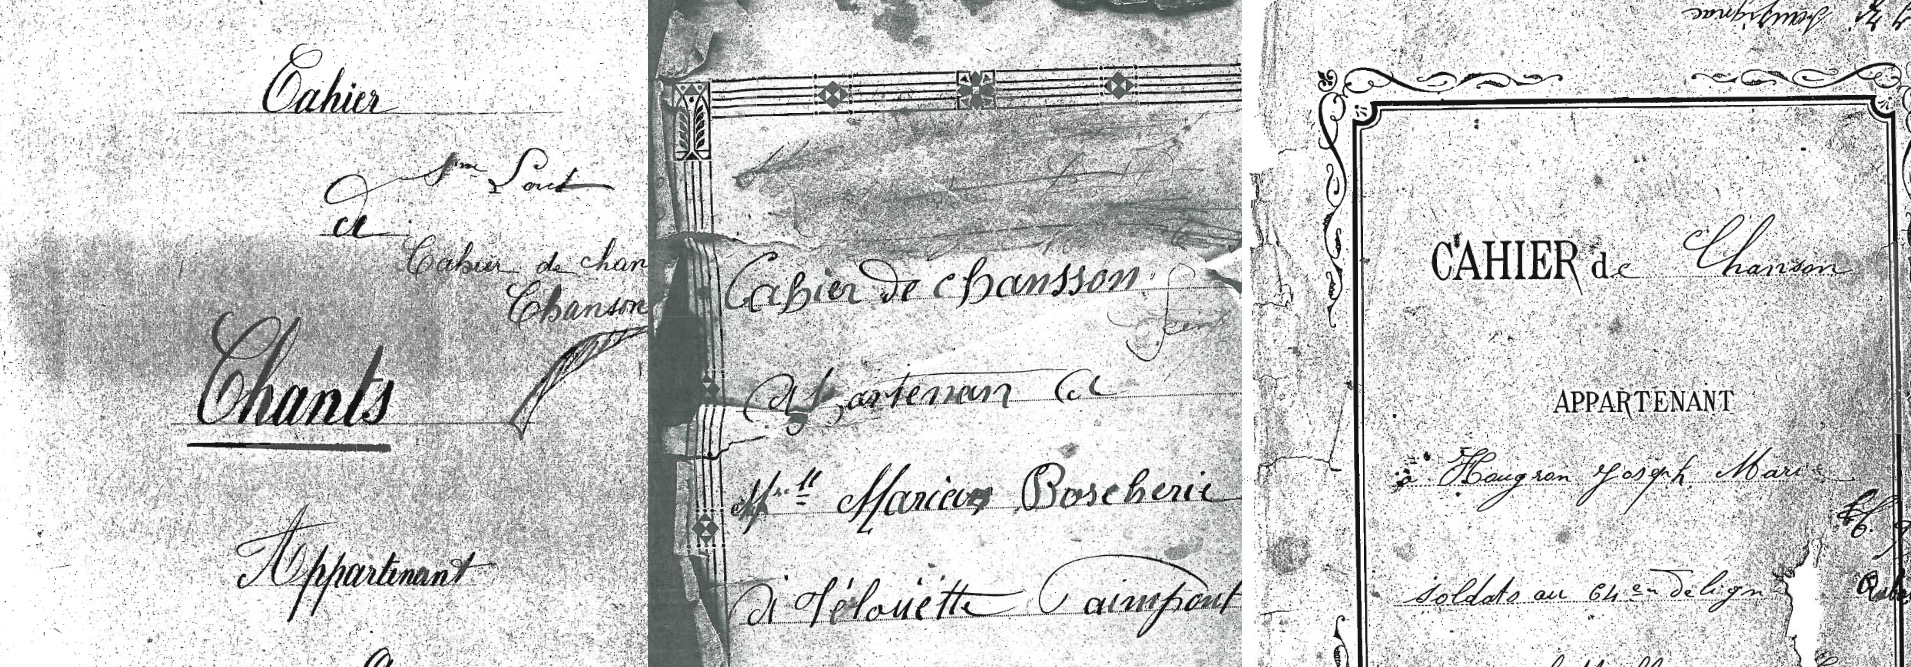 Cahier
de
Cahier de chan
Chanson
Chants
Appartenant
Cahier de chansson
Appartenan a
Marie Boscherie
à Télouëtte Paimpont
CAHIER de Chanson
APPARTENANT
à Hougron Joseph Marie
soldats au 64 de lign